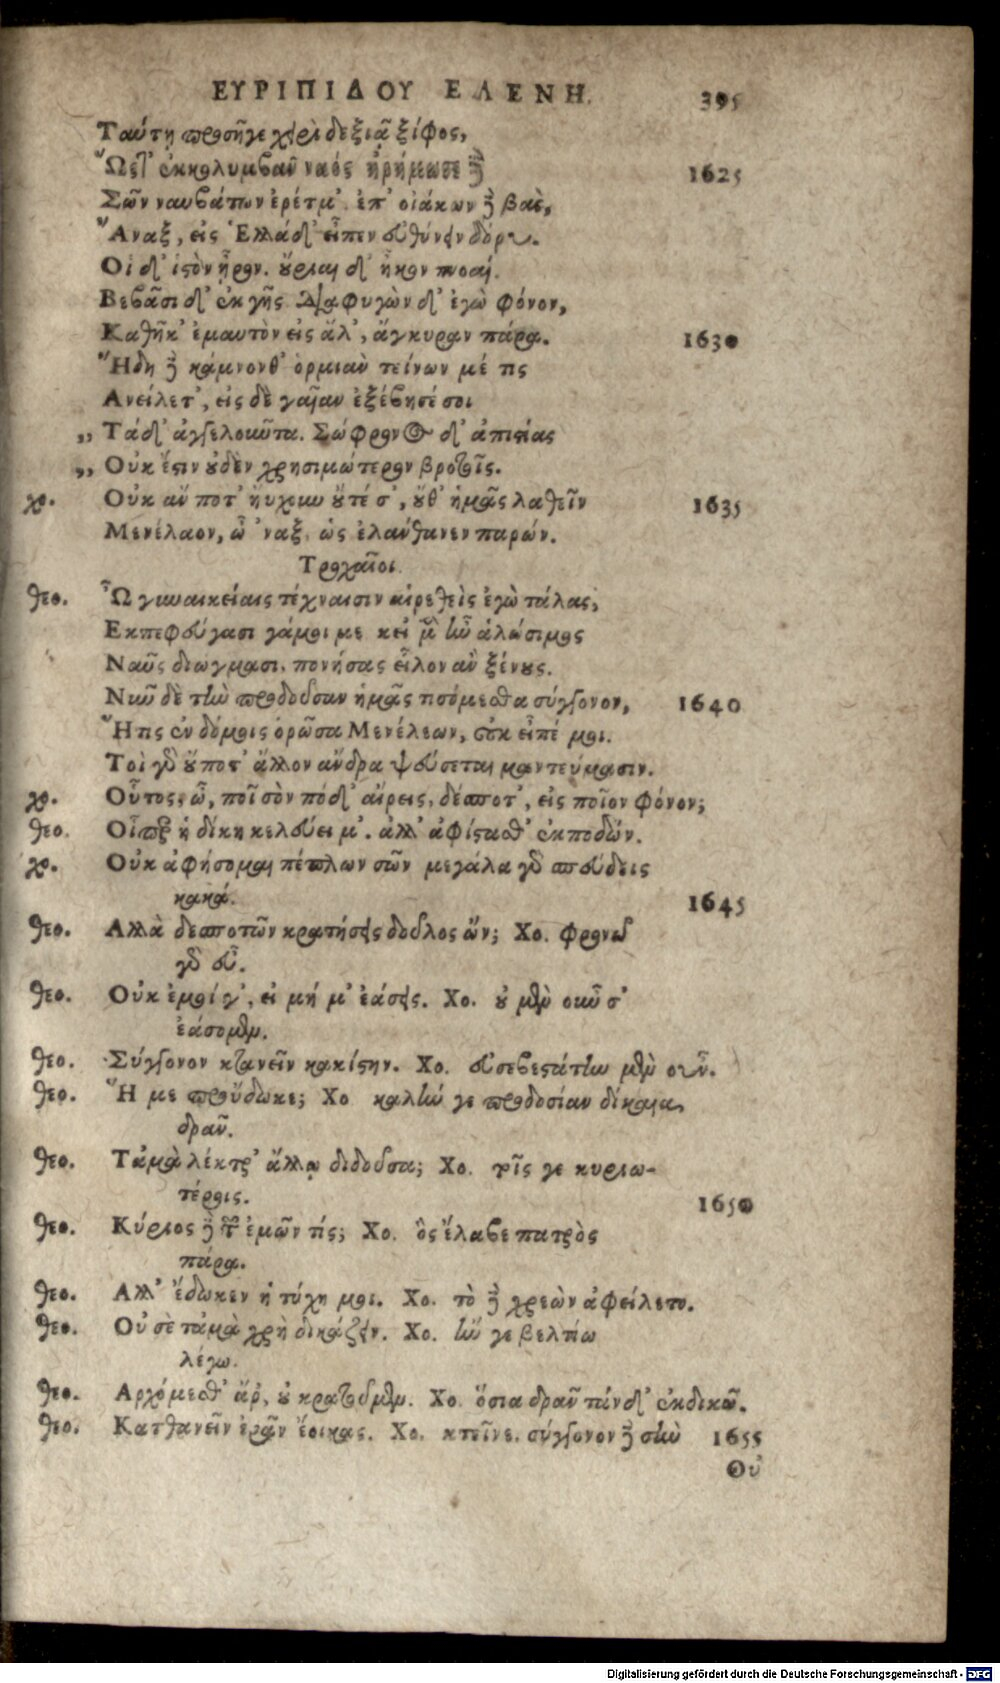 ΕΥΡΙΠΙΔΟΥ ΕΛΕΝΗ. 395
Ταύτῃ προσῆγε χειρὶ δεξιᾷ ξίφος,
Ὥςτ' ἐκκολυμβᾶν ναός ἠρήμωσε δὲ 1625
Σῶν ναυβάτων ἐρέτμ'. ἐπ' οἰάκων δὲ βὰς,
Ἄναξ, εἰς Ἑλλάδ' εἶπεν εὐθύνειν δόρυ.
Οἱ δ' ἱςὸν ᾖρον. οὔριαι δ' ἧκον πνοαί.
Βεβᾶσι δ' ἐκ γῆς διαφυγὼν δ' ἐγὼ φόνον,
Καθῆκ' ἐμαυτὸν εἰς ἅλ', ἄγκυραν πάρα. 1630
Ἤδη δὲ κάμνονθ' ὁρμιὰν τείνων μέ τις
Ανείλετ', εἰς δὲ γαῖαν ἐξέβησέ σοι
„ Τάδ' ἀγγελοῦντα. Σώφρονος δ' ἀπιςίας
„ Οὐκ ἔςιν οὐδὲν χρησιμώτερον βροτοῖς.
χο. Οὐκ ἄν ποτ' ηὔχουν οὔτέ σ', οὔθ' ἡμᾶς λαθεῖν 1635
Μενέλαον, ὦ 'ναξ, ὡς ἐλάνθανεν παρών.
Τροχαῖοι.
θεο. Ὦ γυναικείαις τέχναισιν αἱρεθεὶς ἐγὼ τάλας,
Εκπεφεύγασι γάμοι με κεἰ μὲν ἦν ἁλώσιμος
Ναῦς διωγμασι, πονήσας εἷλον ἂν ξένους.
Νῦν δὲ τὴν προδοῦσαν ἡμᾶς τισόμεσθα σύγγονον, 1640
Ἥτις ἐν δόμοις ὁρῶσα Μενέλεων, οὐκ εἶπέ μοι.
Τοὶ γὰρ οὔποτ' ἄλλον ἄνδρα ψεύσεται μαντεύμασιν.
χο. Οὗτος, ὦ, ποῖ σὸν πόδ' αἴρεις, δέσποτ', εἰς ποῖον φόνον;
θεο. Οἷπερ ἡ δίκη κελεύει μ'. ἀλλ' ἀφίςασθ' ἐκποδών.
χο. Οὐκ ἀφήσομαι πέπλων σῶν μεγάλα γὰρ σπεύδεις
κακά. 1645
θεο. Αλλὰ δεσποτῶν κρατήσεις δοῦλος ὤν; Χο. φρονῶ
γὰρ εὖ.
θεο. Οὐκ ἐμοί γ', εἰ μή μ' ἐάσεις. Χο. οὐ μὲν οὖν σ'
ἐάσομεν.
θεο. Σύγγονον κτανεῖν κακίςην. Χο. εὐσεβεςάτην μὲν οὖν.
θεο. Ἥ με προὔδωκε; Χο καλήν γε προδοσίαν δίκαια
δρᾶν.
θεο. Τἀμὰ λέκτρ' ἄλλῳ διδοῦσα; Χο. τοῖς γε κυριω-
τέροις. 1650
θεο. Κύριος δὲ τῶν ἐμῶν τίς; Χο. ὃς ἔλαβε πατρὸς
πάρα.
θεο. Αλλ' ἔδωκεν ἡ τύχη μοι. Χο. τὸ δὲ χρεὼν ἀφείλετο.
θεο. Οὐ σὲ τἀμὰ χρὴ δικάζειν. Χο. ἤν γε βελτίω
λέγω.
θεο. Αρχόμεσθ' ἄρ, οὐ κρατοῦμεν. Χο. ὅσια δρᾶν τάνδ' ἐκδικᾶν.
θεο. Κατθανεῖν ἐρᾶν ἔοικας. Χο. κτεῖνε. σύγγονον δὲ σὴν 1655
Οὐ
Digitalisierung gefördert durch die Deutsche Forschungsgemeinschaft - DFG